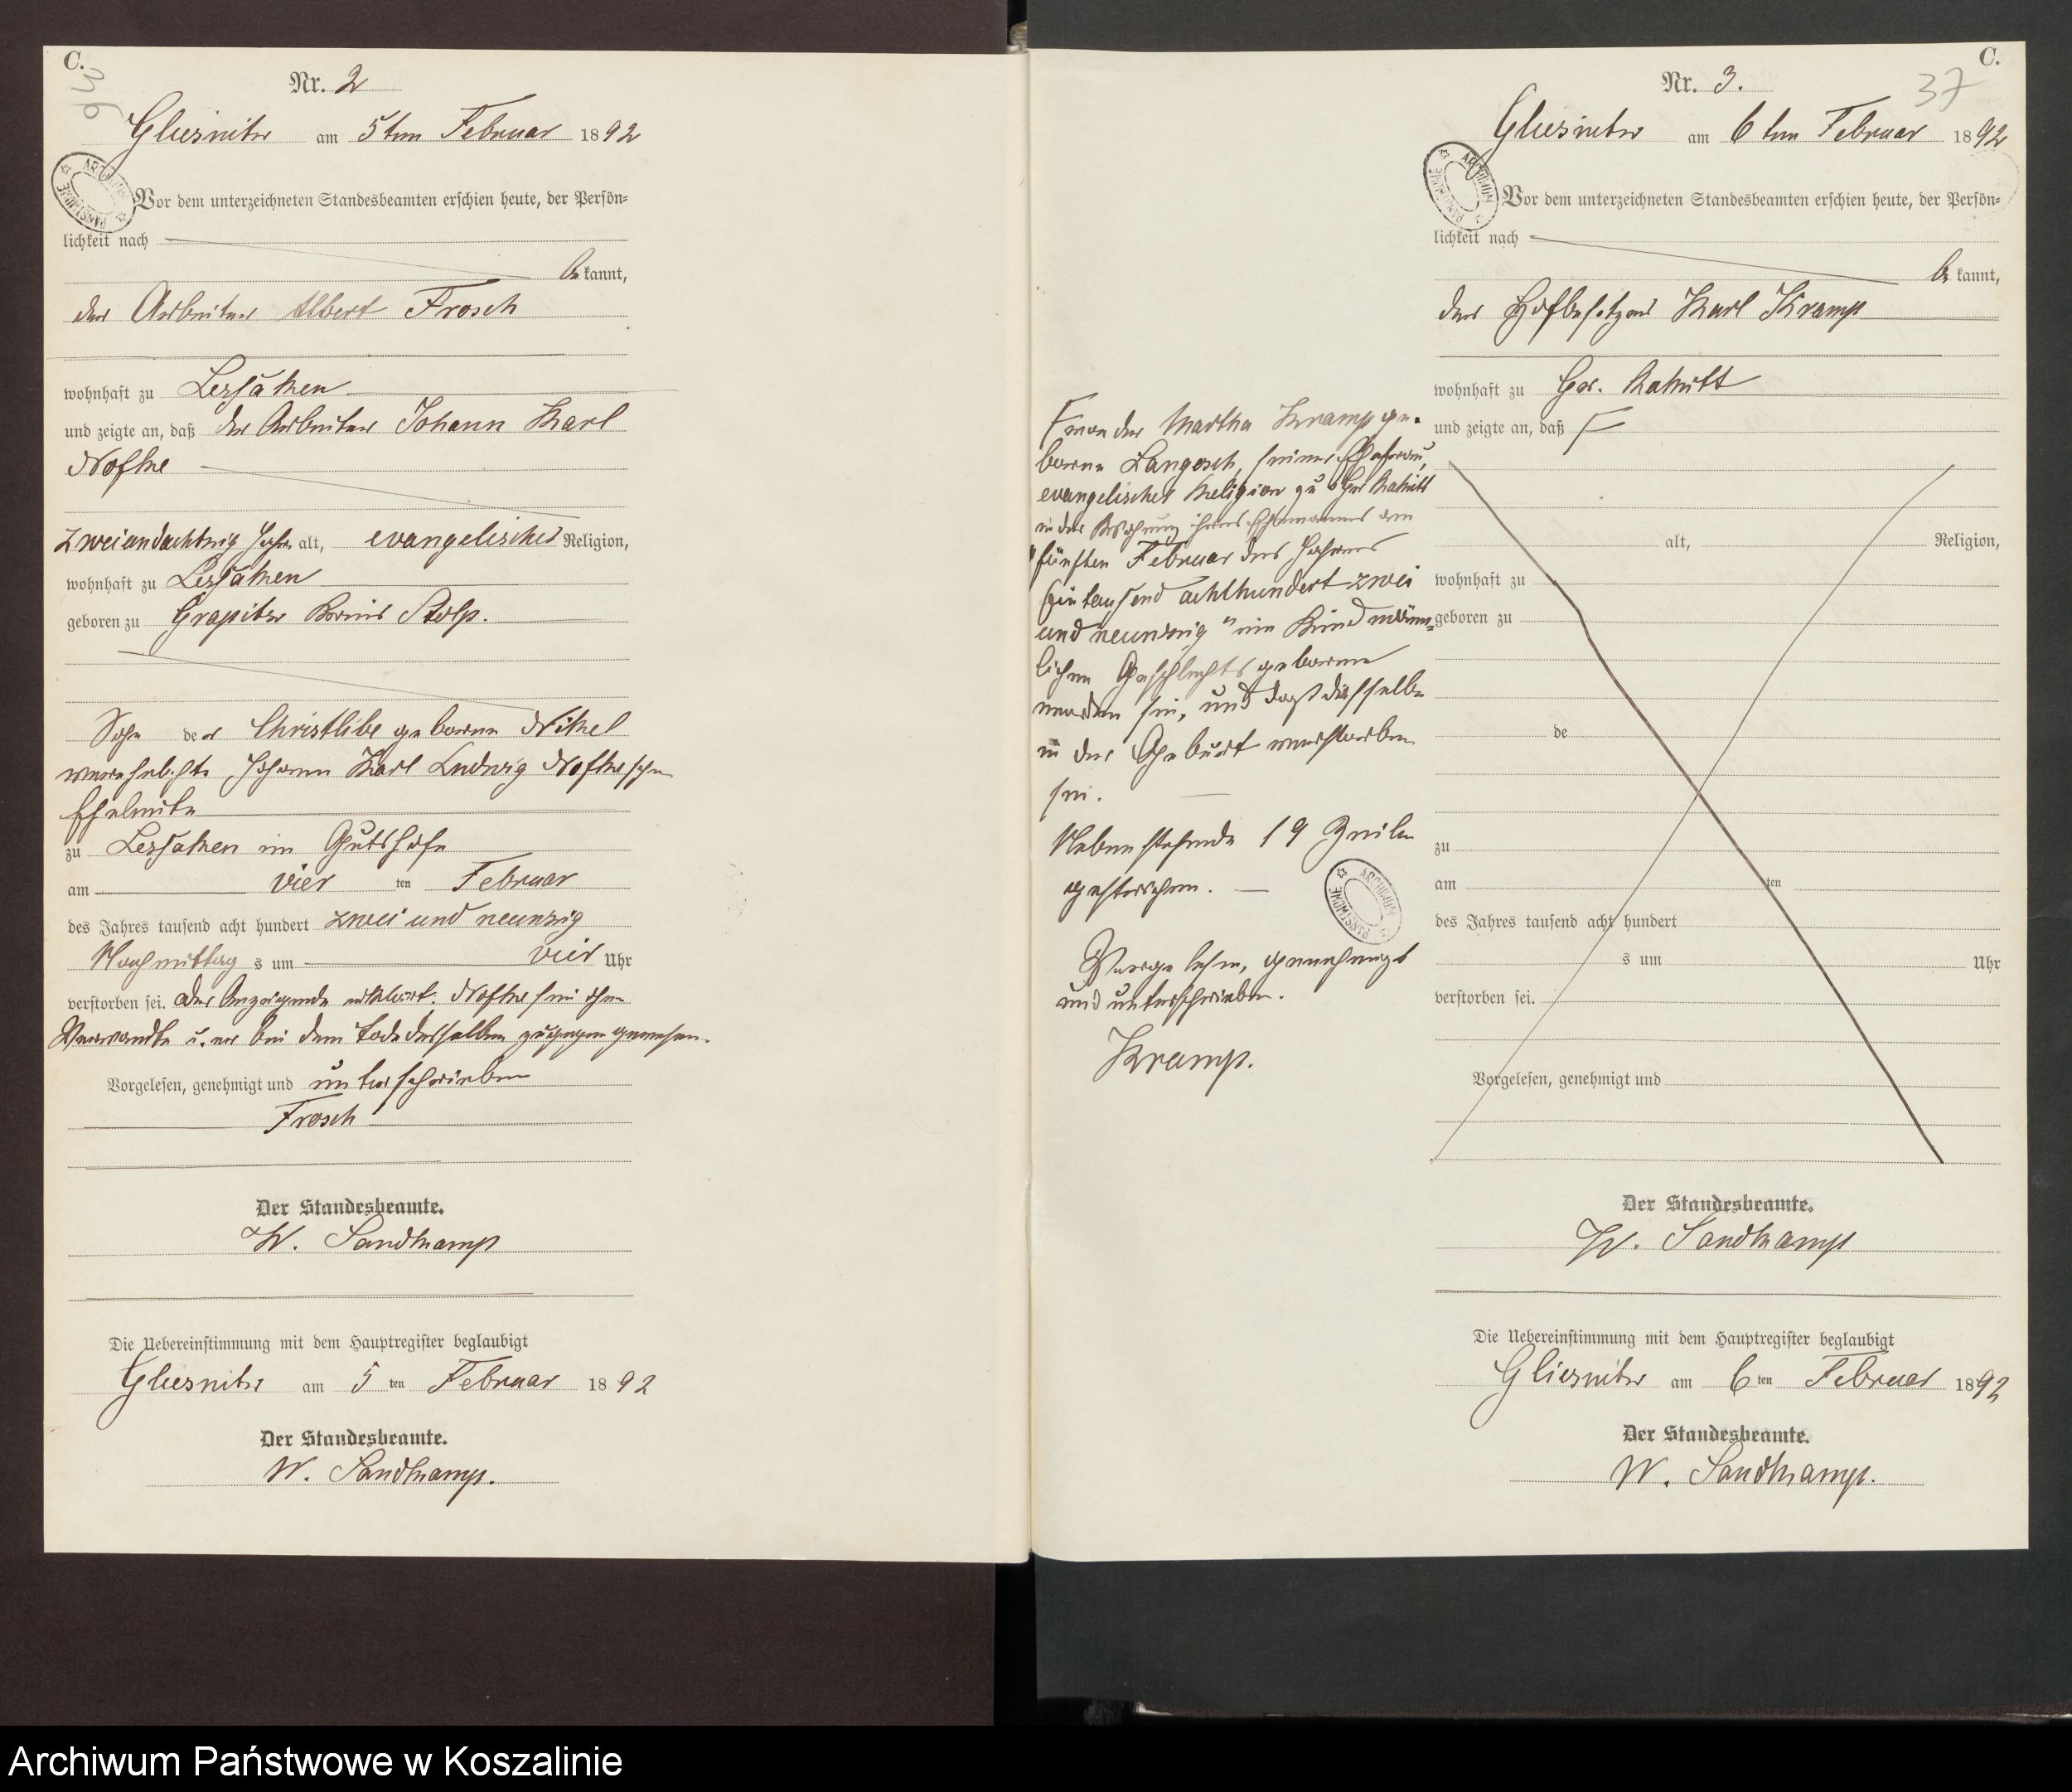 C.
36
Nr. 2
Gliesnitz am 5ten Februar 1892
Vor dem unterzeichneten Standesbeamten erschien heute, der Persön-
lichkeit nach
be kannt,
der Arbeiter Albert Frosch
wohnhaft zu Lessaken
und zeigte an, daß der Arbeiter Johann Karl
Noffke
zweiundachtzig Jahre alt, evangelischer Religion,
wohnhaft zu Lessaken
geboren zu Grapitz Kreis Stolp.
Sohn der Christlibe geborene Nikel
verehelichte Johann Karl Ludwig Noffkeschen
Eheleute
zu Lessaken im Gutshofe
am vier ten Februar
des Jahres tausend acht hundert zwei und neunzig
Nachmittag s um vier Uhr
verstorben sei. Der Anzeigende erklärt. Noffke sei ihm
Verwandte u. er bei dem Tode desselben zugegen gewesen.
Vorgelesen, genehmigt und unterschrieben
Frosch
Der Standesbeamte.
W. Sandkamp
Die Uebereinstimmung mit dem Hauptregister beglaubigt
Gliesnitz am 5 ten Februar 1892
Der Standesbeamte.
W. Sandkamp.
C.
37
Nr. 3.
Gliesnitz am 6ten Februar 1892
Vor dem unterzeichneten Standesbeamten erschien heute, der Persön-
lichkeit nach
be kannt,
der Hofbesitzer Karl Kramp
wohnhaft zu Gr. Rakitt
und zeigte an, daß
von der Martha Kramp ge-
borene Langosch, seiner Ehefrau,
evangelischer Religion zu Gr. Rakitt
in der Wohnung ihres Ehemannes am
"fünften Februar des Jahres
Eintausend achthundert zwei
und neunzig" ein Kind männ-
lichen Geschlechts geboren
worden sei, und daß dasselbe
in der Geburt verstorben
sei.
Nebenstehende 19 Zeilen
gestrichen.
Vorgelesen, genehmigt
und unterschrieben.
Kramp.
alt, Religion,
wohnhaft zu
geboren zu
de
zu
am ten
des Jahres tausend acht hundert
s um Uhr
verstorben sei.
Vorgelesen, genehmigt und
Der Standesbeamte.
W. Sandkamp
Die Uebereinstimmung mit dem Hauptregister beglaubigt
Gliesnitz am 6 ten Februar 1892
Der Standesbeamte.
W. Sandkamp.
ARCHIWUM PAŃSTWOWE
Archiwum Państwowe w Koszalinie